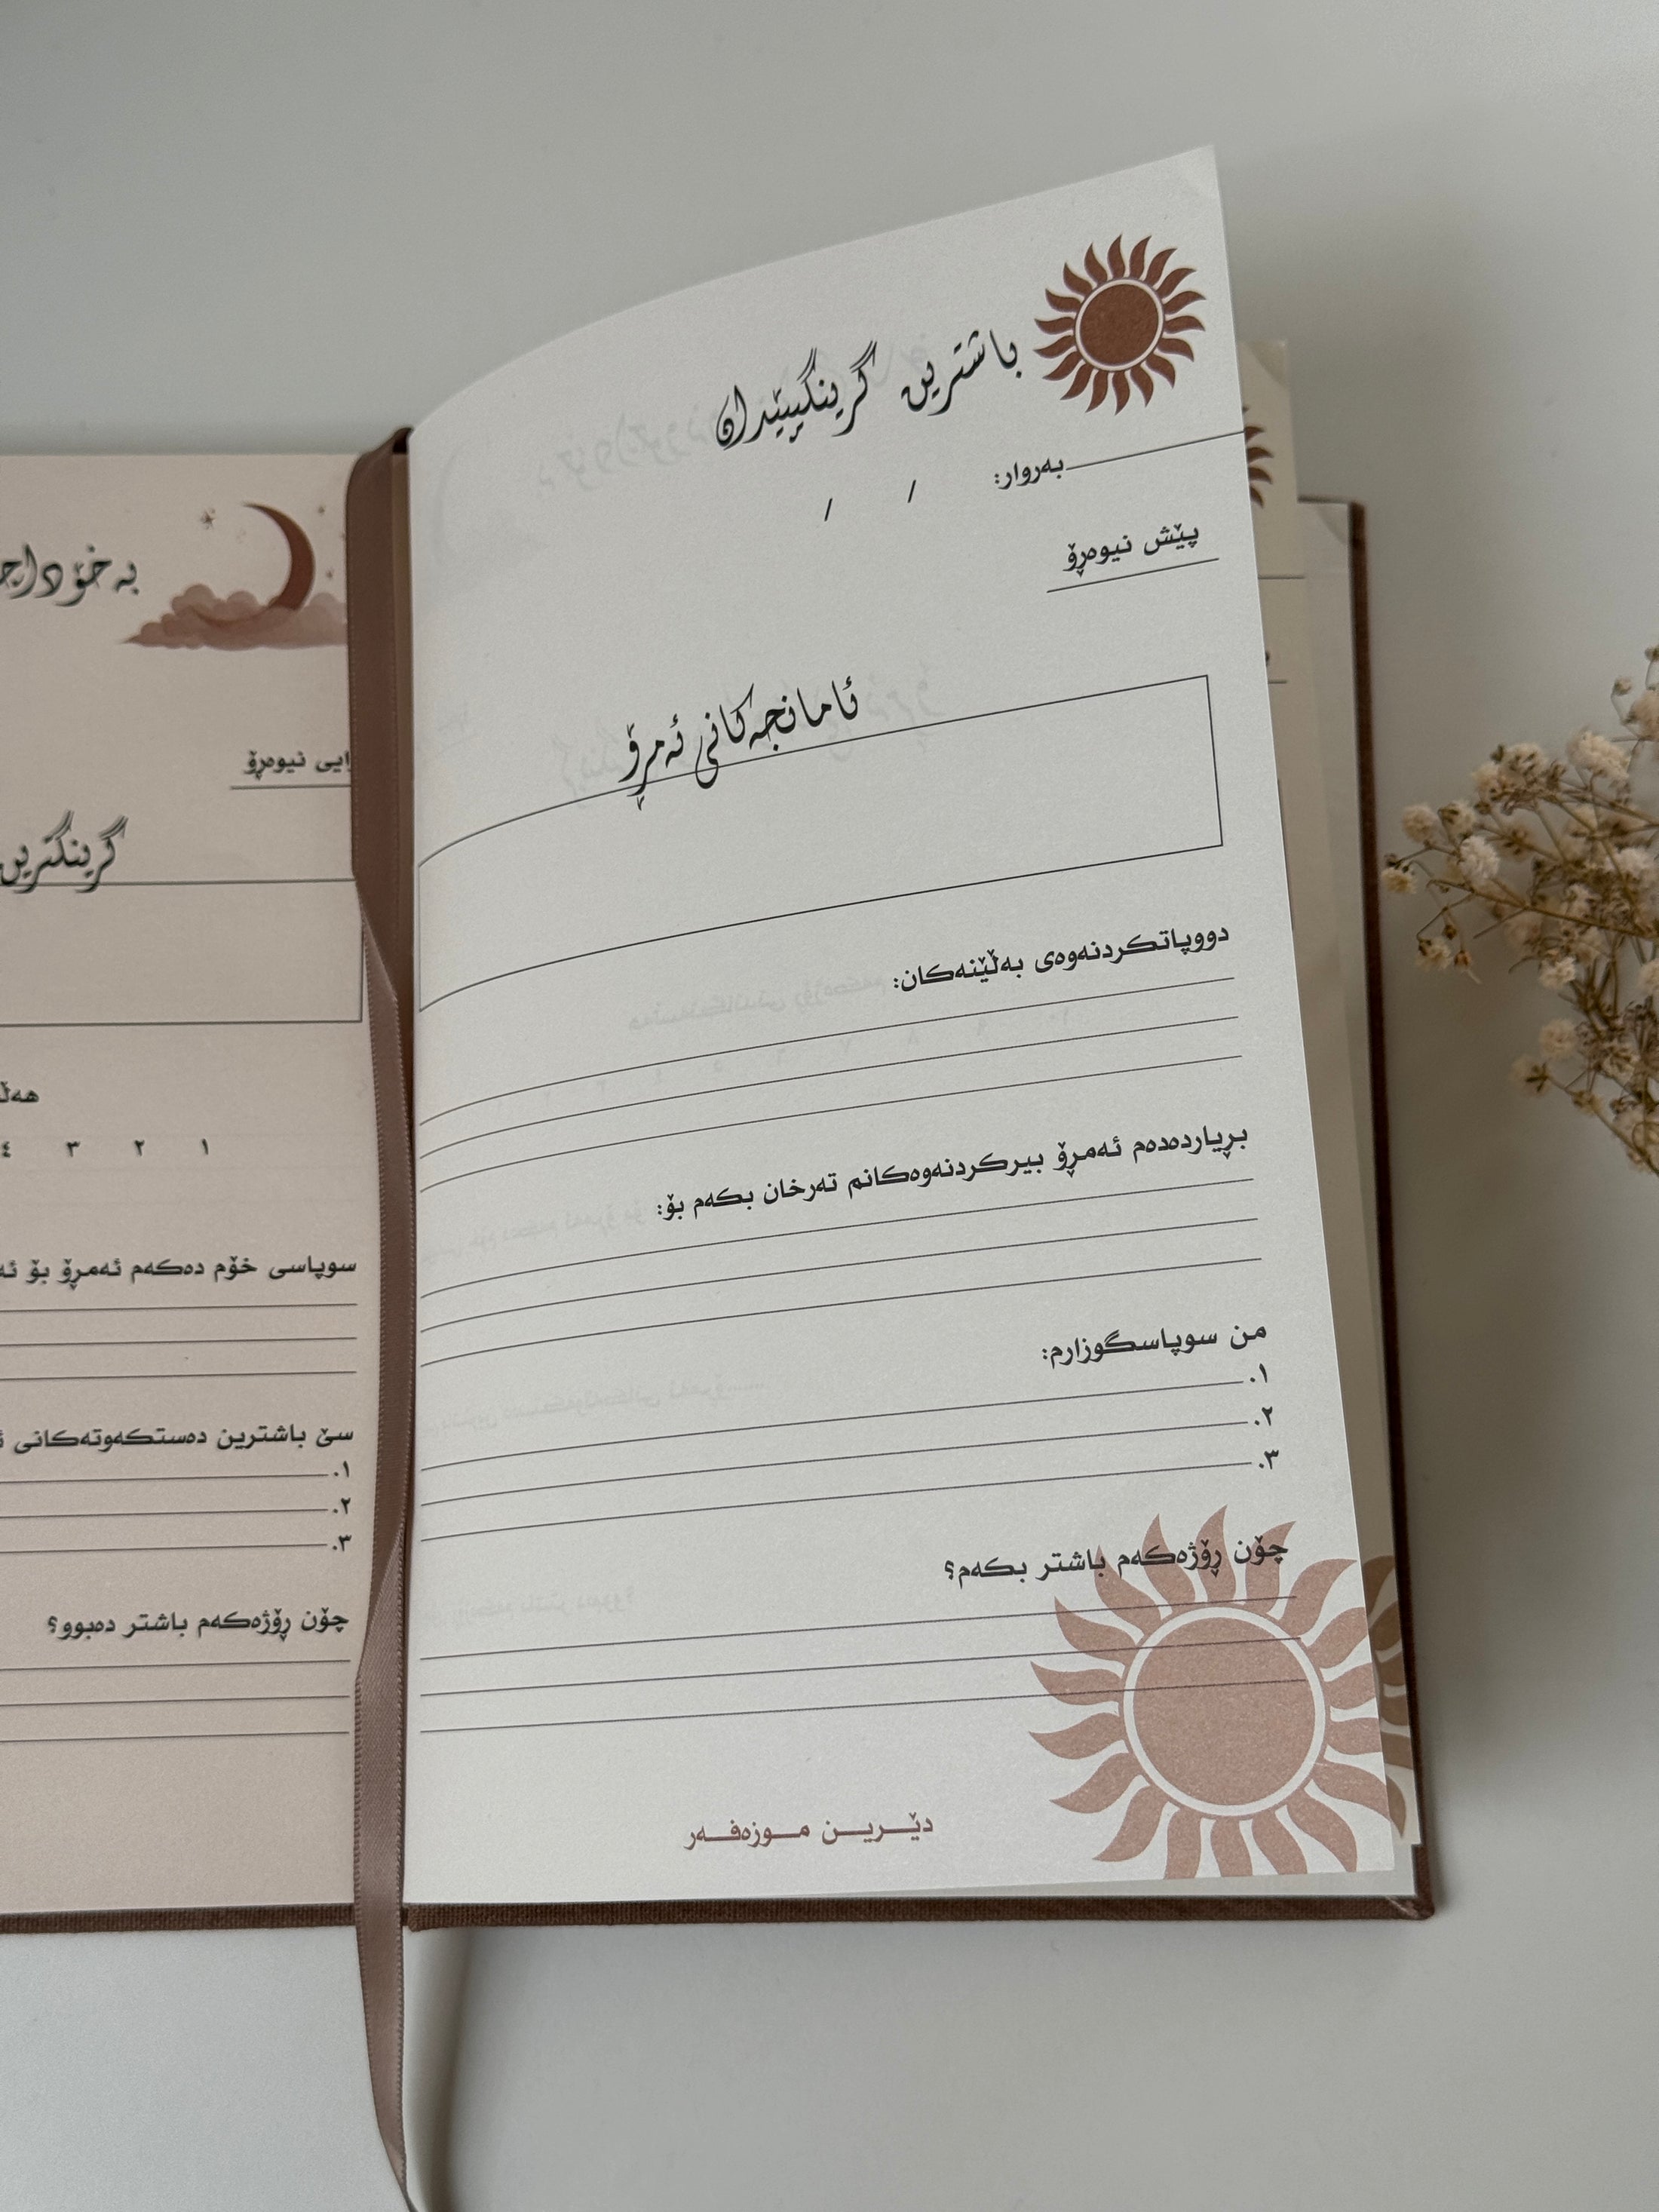 باشترین گرینگیپێدان
بەروار: / /
پێش نیوەڕۆ
ئامانجەکانی ئەمڕۆ
دووپاتکردنەوەی بەڵێنەکان:
بڕیاردەدەم ئەمڕۆ بیرکردنەوەکانم تەرخان بکەم بۆ:
من سوپاسگوزارم:
.١
.٢
.٣
چۆن ڕۆژەکەم باشتر بکەم؟
دێــریــن مــوزەفــەر
بە خۆداچ
ایی نیوەڕۆ
گرینگترین
هەڵ
١ ٢ ٣ ٤
سوپاسی خۆم دەکەم ئەمڕۆ بۆ ئە
سێ باشترین دەستکەوتەکانی ئ
.١
.٢
.٣
چۆن ڕۆژەکەم باشتر دەبوو؟